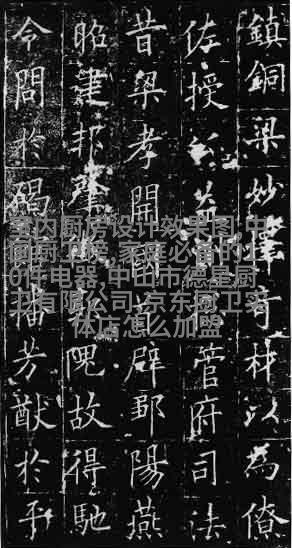 鎮銅梁妙擇奇材以為僚
佐授公益管府司法
昔梁孝開國首辟鄒陽燕
昭建邦肇隗故得馳
令問於碣播芳猷於平
室内厨房设计效果图,中
国厨卫,家庭必备的1
0件电器,中山市德星厨
卫有限公司,京东厨卫实
体店怎么加盟